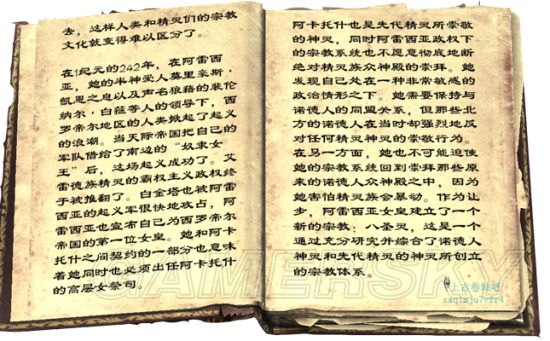 去，这样人类和精灵们的宗教
文化就变得难以区分了。
在1纪元的242年，在阿雷西
亚，她的半神爱人莫里豪斯·
凯恩之息以及声名狼藉的装佬
纳尔·白菈等人的领导下，西
罗帝尔地区的人类掀起了起义
的浪潮。当天际帝国把自己的
军队借给了南边的“奴隶女
王”后，这场起义成功了。艾
雷德族精灵的霸权主义政权终
于被推翻了。白金塔也被阿雷
西亚的起义军很快地攻占，阿
雷西亚也宣布自己为西罗帝尔
帝国的第一位女皇。她和阿卡
托什之间契约的一部分也意味
着她同时也必须出任阿卡托什
的高层女祭司。
阿卡托什也是先代精灵所崇敬
的神灵，同时阿雷西亚政权下
的宗教系统也不愿意彻底地断
绝对精灵族众神殿的崇拜。她
发现自己处在一种非常敏感的
政治情形之下。她需要保持与
诺德人的同盟关系，但那些北
方的诺德人在当时却强烈地反
对任何精灵神灵的崇敬行为。
在另一方面，她也不可能迫使
她的宗教系统回到崇拜那些原
来的诺德人众神殿之中，因为
她害怕精灵族会暴动。作为让
步，阿雷西亚女皇建立了一个
新的宗教：八圣灵，这是一个
通过充分研究并综合了诺德人
神灵和先代精灵的神灵所创立
的宗教体系。
上古卷轴吧
zaqlmju7vfr4
GAMERSKY